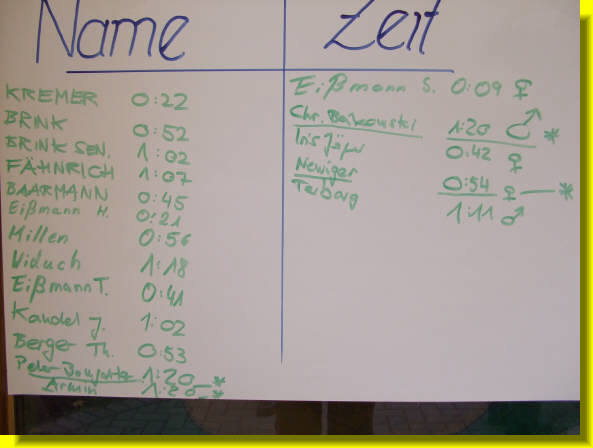 Name Zeit
KREMER 0:22
BRINK 0:52
BRINK SEN. 1:02
FÄHNRICH 1:07
BAARMANN 0:45
Eißmann H. 0:21
Millen 0:56
Viduch 1:18
Eißmann T. 0:41
Kandel J. 1:02
Berger Th. 0:53
Peter 1:20 *
Armin 1:20 *
Eißmann S. 0:09 ♀
Chr. 1:20 ♂ *
Iris Jäger 0:42 ♀
Newiger 0:54 ♀ *
Terborg 1:11 ♂